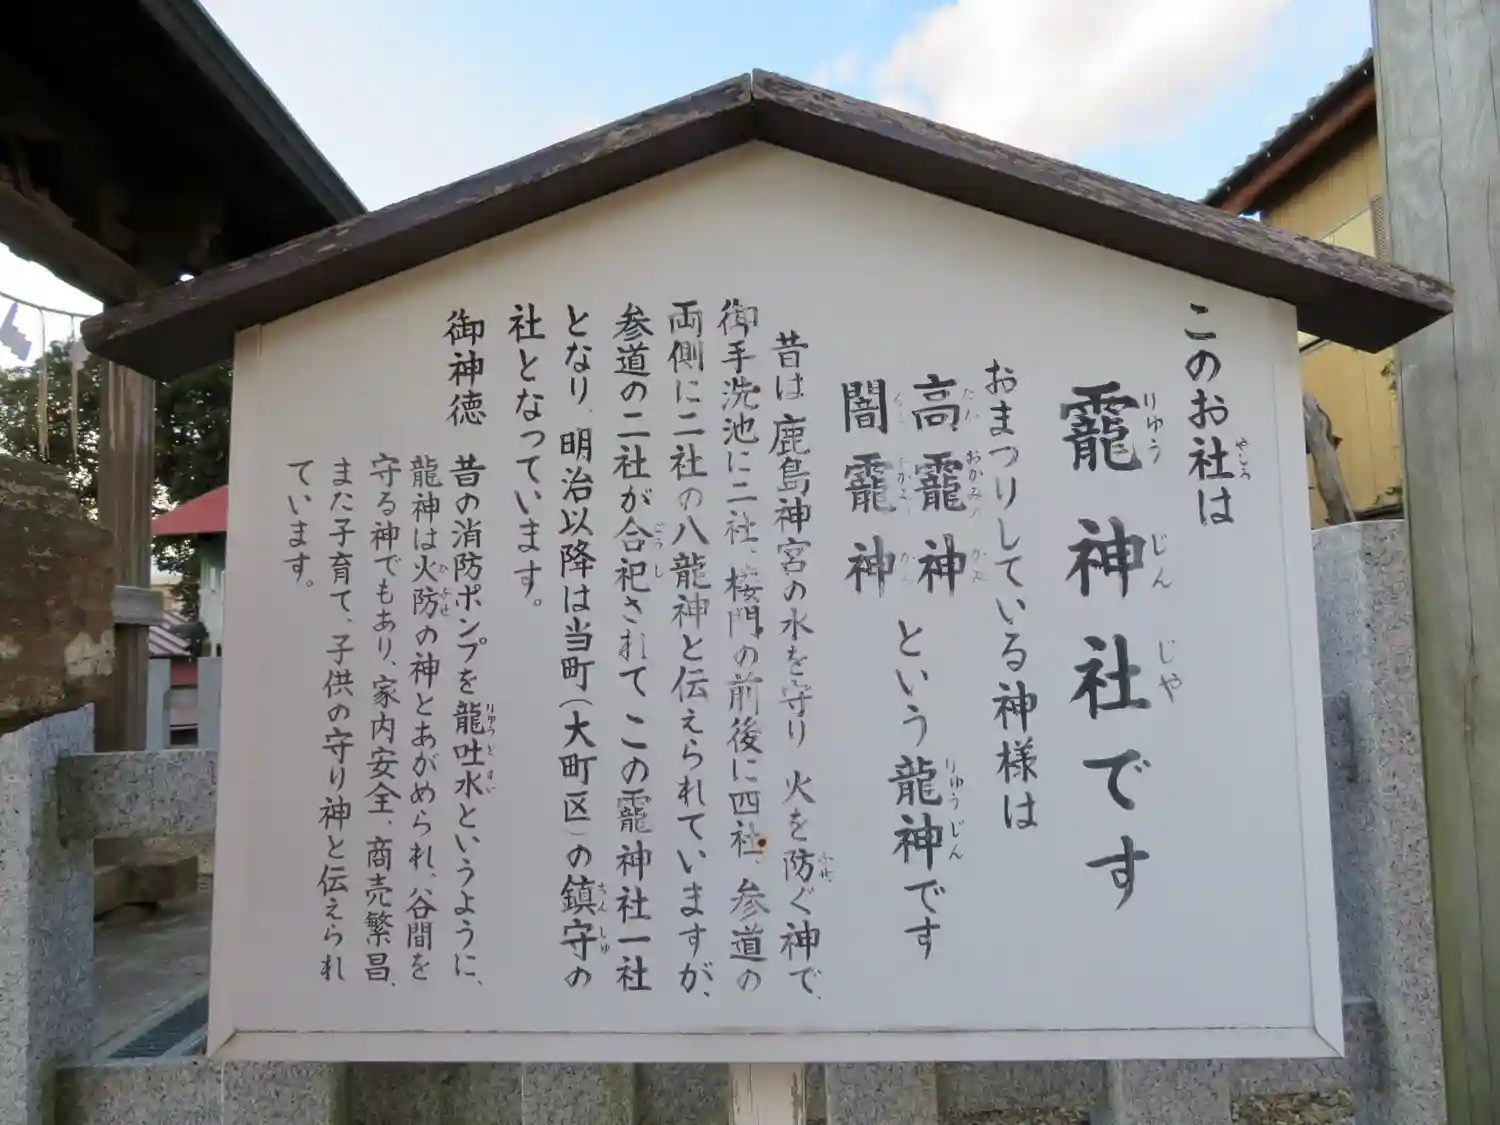 このお社は
龗神社です
おまつりしている神様は
高龗神
闇龗神
という龍神です
昔は鹿島神宮の水を守り 火を防ぐ神で、
御手洗池に二社、楼門の前後に四社、参道の
両側に二社の八龍神と伝えられていますが、
参道の二社が合祀されて この龗神社一社
となり、明治以降は当町(大町区)の鎮守の
社となっています。
御神徳 昔の消防ポンプを龍吐水というように、
龍神は火防の神とあがめられ、谷間を
守る神でもあり、家内安全、商売繁昌、
また子育て、子供の守り神と伝えられ
ています。